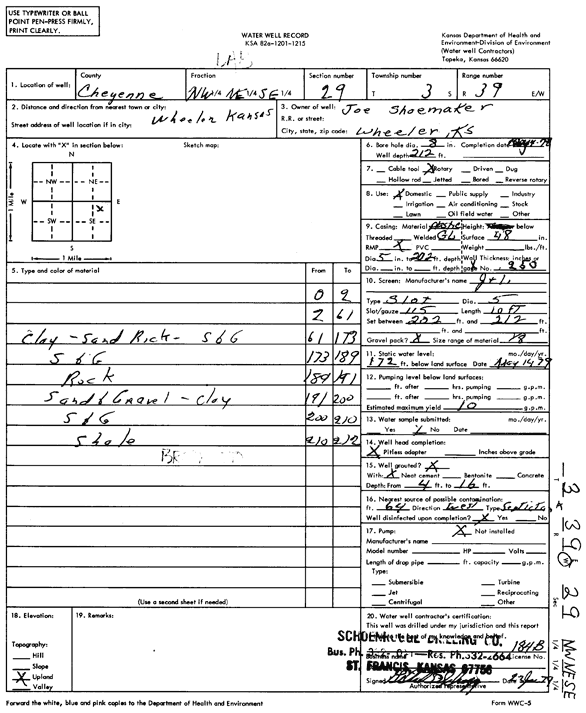 USE TYPEWRITER OR BALL
POINT PEN-PRESS FIRMLY,
PRINT CLEARLY.
WATER WELL RECORD
KSA 82a-1201-1215
Kansas Department of Health and
Environment-Division of Environment
(Water well Contractors)
Topeka, Kansas 66620
1. Location of well: County Fraction Section number Township number Range number
Cheyenne NW 1/4 NE 1/4 SE 1/4 29 T 3 S R 39 E/W
2. Distance and direction from nearest town or city: Wheeler Kansas
Street address of well location if in city:
3. Owner of well: Joe Shoemaker
R.R. or street:
City, state, zip code: Wheeler, KS
4. Locate with "X" in section below: Sketch map:
N
NW NE
W E
SW SE X
S
1 Mile
1 Mile
5. Type and color of material From To
0 2
2 61
Clay - Sand Rick - S & G 61 173
S & G 173 189
Rock 189 191
Sand & Gravel - Clay 191 200
S & G 200 210
Shale 210 212
(Use a second sheet if needed)
6. Bore hole dia. 8 in. Completion date
Well depth 212 ft.
7. Cable tool X Rotary Driven Dug
Hollow rod Jetted Bored Reverse rotary
8. Use: X Domestic Public supply Industry
Irrigation Air conditioning Stock
Lawn Oil field water Other
9. Casing: Material Height: below
Threaded Welded GL Surface 48 in.
RMP X PVC Weight lbs./ft.
Dia. 5 in. to 202 ft. depth Wall Thickness: inches or
Dia. in. to ft. depth gage No.
10. Screen: Manufacturer's name
Type Slot Dia. 5
Slot/gauze 115 Length 10 ft
Set between 202 ft. and 212 ft.
ft. and ft.
Gravel pack? X Size range of material 1/8
11. Static water level: mo./day/yr.
172 ft. below land surface Date May 14, 79
12. Pumping level below land surfaces:
ft. after hrs. pumping g.p.m.
ft. after hrs. pumping g.p.m.
Estimated maximum yield 10 g.p.m.
13. Water sample submitted: mo./day/yr.
Yes X No Date
14. Well head completion:
X Pitless adapter Inches above grade
15. Well grouted? X
With: X Neat cement Bentonite Concrete
Depth: From 4 ft. to 16 ft.
16. Nearest source of possible contamination:
ft. 64 Direction West Type
Well disinfected upon completion? X Yes No
17. Pump: X Not installed
Manufacturer's name
Model number HP Volts
Length of drop pipe ft. capacity g.p.m.
Type:
Submersible Turbine
Jet Reciprocating
Centrifugal Other
18. Elevation:
Topography:
Hill
Slope
X Upland
Valley
19. Remarks:
20. Water well contractor's certification:
This well was drilled under my jurisdiction and this report
is true to the best of my knowledge and belief.
SCHOENROGGE DRILLING CO. 184B
Business name License No.
Bus. Ph. Res. Ph. 332-2664
ST. FRANCIS, KANSAS 67756
Signed Date
Authorized representative
Forward the white, blue and pink copies to the Department of Health and Environment
Form WWC-5
T 3
R 39 W
Sec 29
NW NE SE
1/4 1/4 1/4